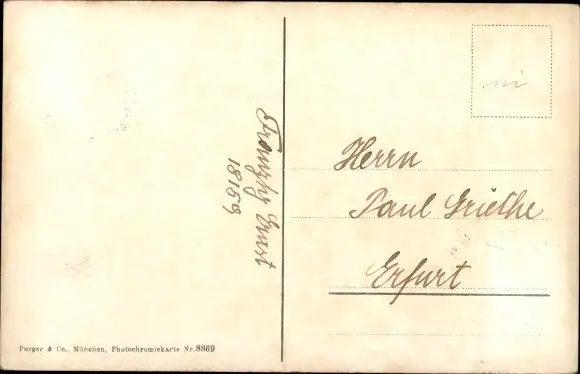 Herrn
Paul Griethe
Erfurt
Ernst
18159
Purger & Co., München, Photochromiekarte Nr. 8869